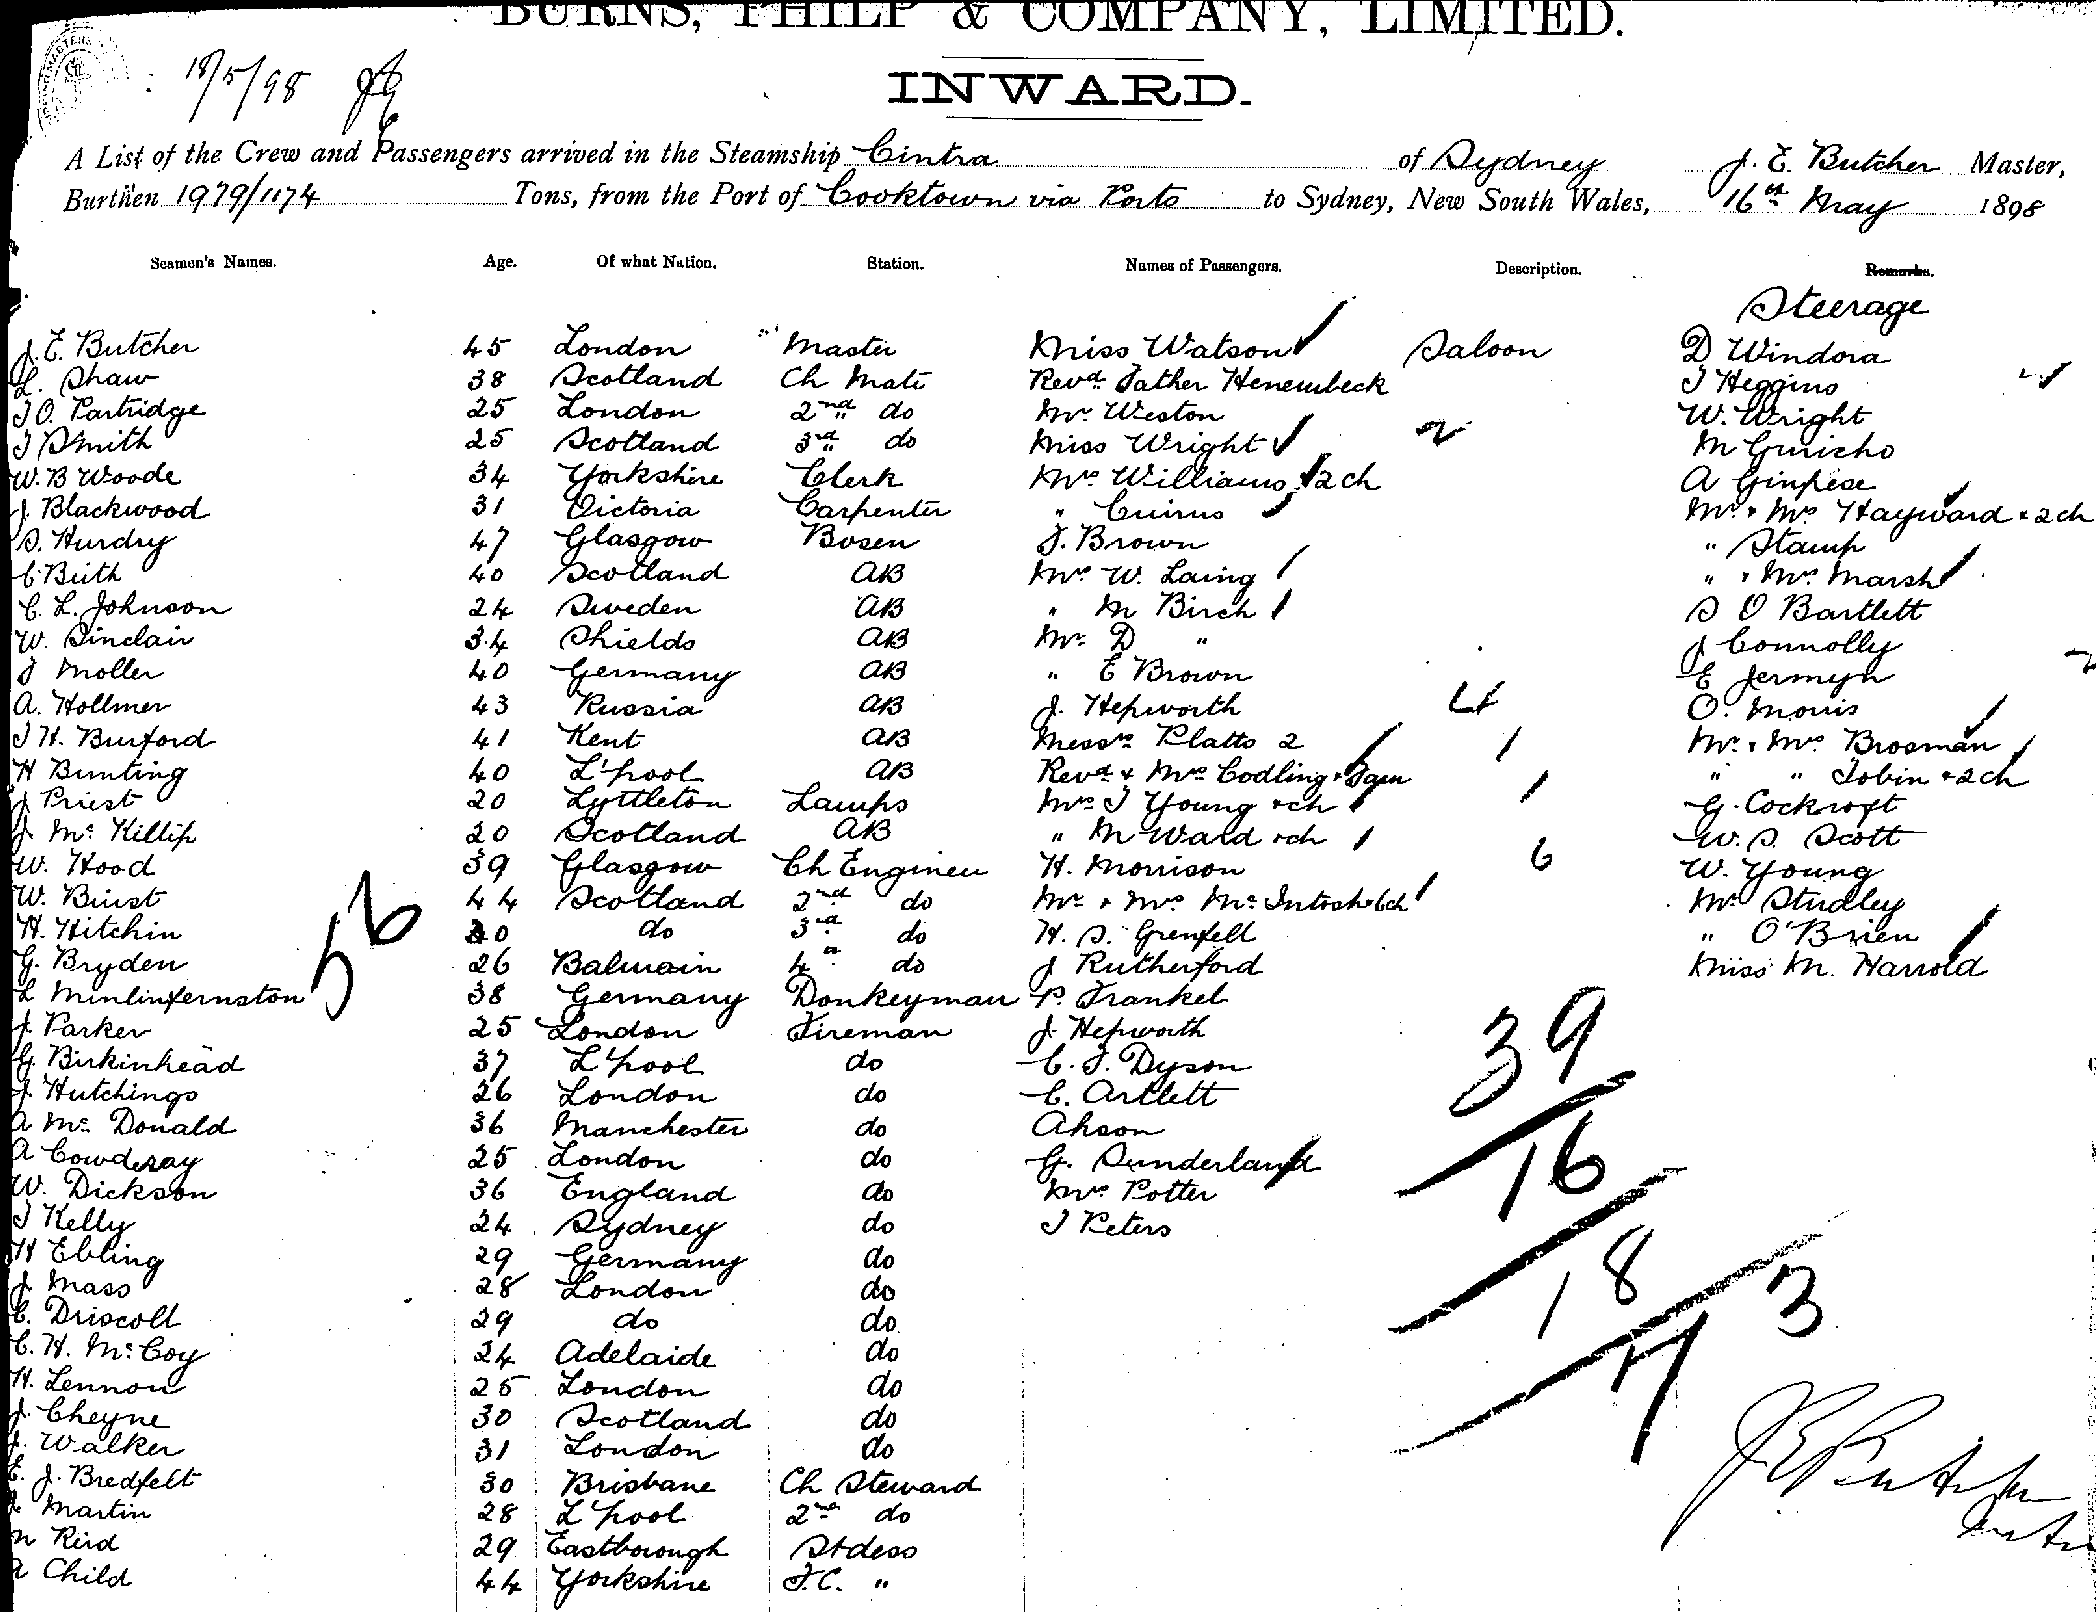 BURNS, PHILP & COMPANY, LIMITED.
18/5/98
INWARD.
A List of the Crew and Passengers arrived in the Steamship Cintra of Sydney J. E. Butcher Master,
Burthen 1979/1174 Tons, from the Port of Cooktown via Ports to Sydney, New South Wales, 16th May 1898
Seamen's Names. Age. Of what Nation. Station. Names of Passengers. Description. Remarks.
Steerage
J. E. Butcher 45 London Master Miss Watson Saloon D Windora
L. Shaw 38 Scotland Ch Mate Revd. Father Henewbeck J Heggins
J O. Partridge 25 London 2nd do Mr. Weston W. Wright
J Smith 25 Scotland 3rd do Miss Wright 2 M Guricho
W. B Woode 34 Yorkshire Clerk Mrs. Williams 2 ch A Ginpese
J. Blackwood 31 Victoria Carpenter " Cuirns Mr. & Mrs Hayward & 2 ch
S. Hurdry 47 Glasgow Bosen J. Brown " Stamp
C. Beith 40 Scotland AB Mrs. W. Laing " " Mrs. Marsh
C. L. Johnson 24 Sweden AB " M Birch S O Bartlett
W. Sinclair 34 Shields AB Mr. D " J Connolly
J Moller 40 Germany AB " E Brown E Jermyn
A. Hollmer 43 Russia AB J. Hepworth 4 O. Morris
J H. Burford 41 Kent AB Messrs Platts 2 1 Mr. & Mrs. Brosman
H Bunting 40 L'pool AB Revd & Mrs Codling & " " Tobin & 2 ch
J Priest 20 Lyttleton Lamps Mrs J Young & ch 1 G. Cockroft
J. Mc Killip 20 Scotland AB " M Ward & ch W. S. Scott
W. Hood 39 Glasgow Ch Engineer H. Morrison 6 W. Young
W. Buist 44 Scotland 2nd do Mr & Mrs McIntosh & 6 ch Mr Studley
H. Hitchin 30 do 3rd do H. S. Grenfell " O'Brien
G. Bryden 26 Balmain 4th do J Rutherford Miss M. Harrold
L Minlinfernston 38 Germany Donkeyman P. Frankel
56
J. Parker 25 London Fireman J. Hepworth
G. Birkinhead 37 L'pool do C. J. Dyson
39
J. Hutchings 26 London do C. Artlett
A Mc Donald 36 Manchester do Ahson
A Cowderay 25 London do G. Sunderland
16
W. Dickson 36 England do Mrs Potter
J Kelly 24 Sydney do J Peters
H Ebling 29 Germany do
J. Mass 28 London do
18
C. Driscoll 29 do do
3
C. H. McCoy 24 Adelaide do
H. Lennon 25 London do
J. Cheyne 30 Scotland do
J. Walker 31 London do
E. J. Bredfelt 30 Brisbane Ch Steward
J E Butcher
Martin 28 L'pool 2nd do
Reid 29 Eastborough Stdess
A Child 44 Yorkshire F.C. "